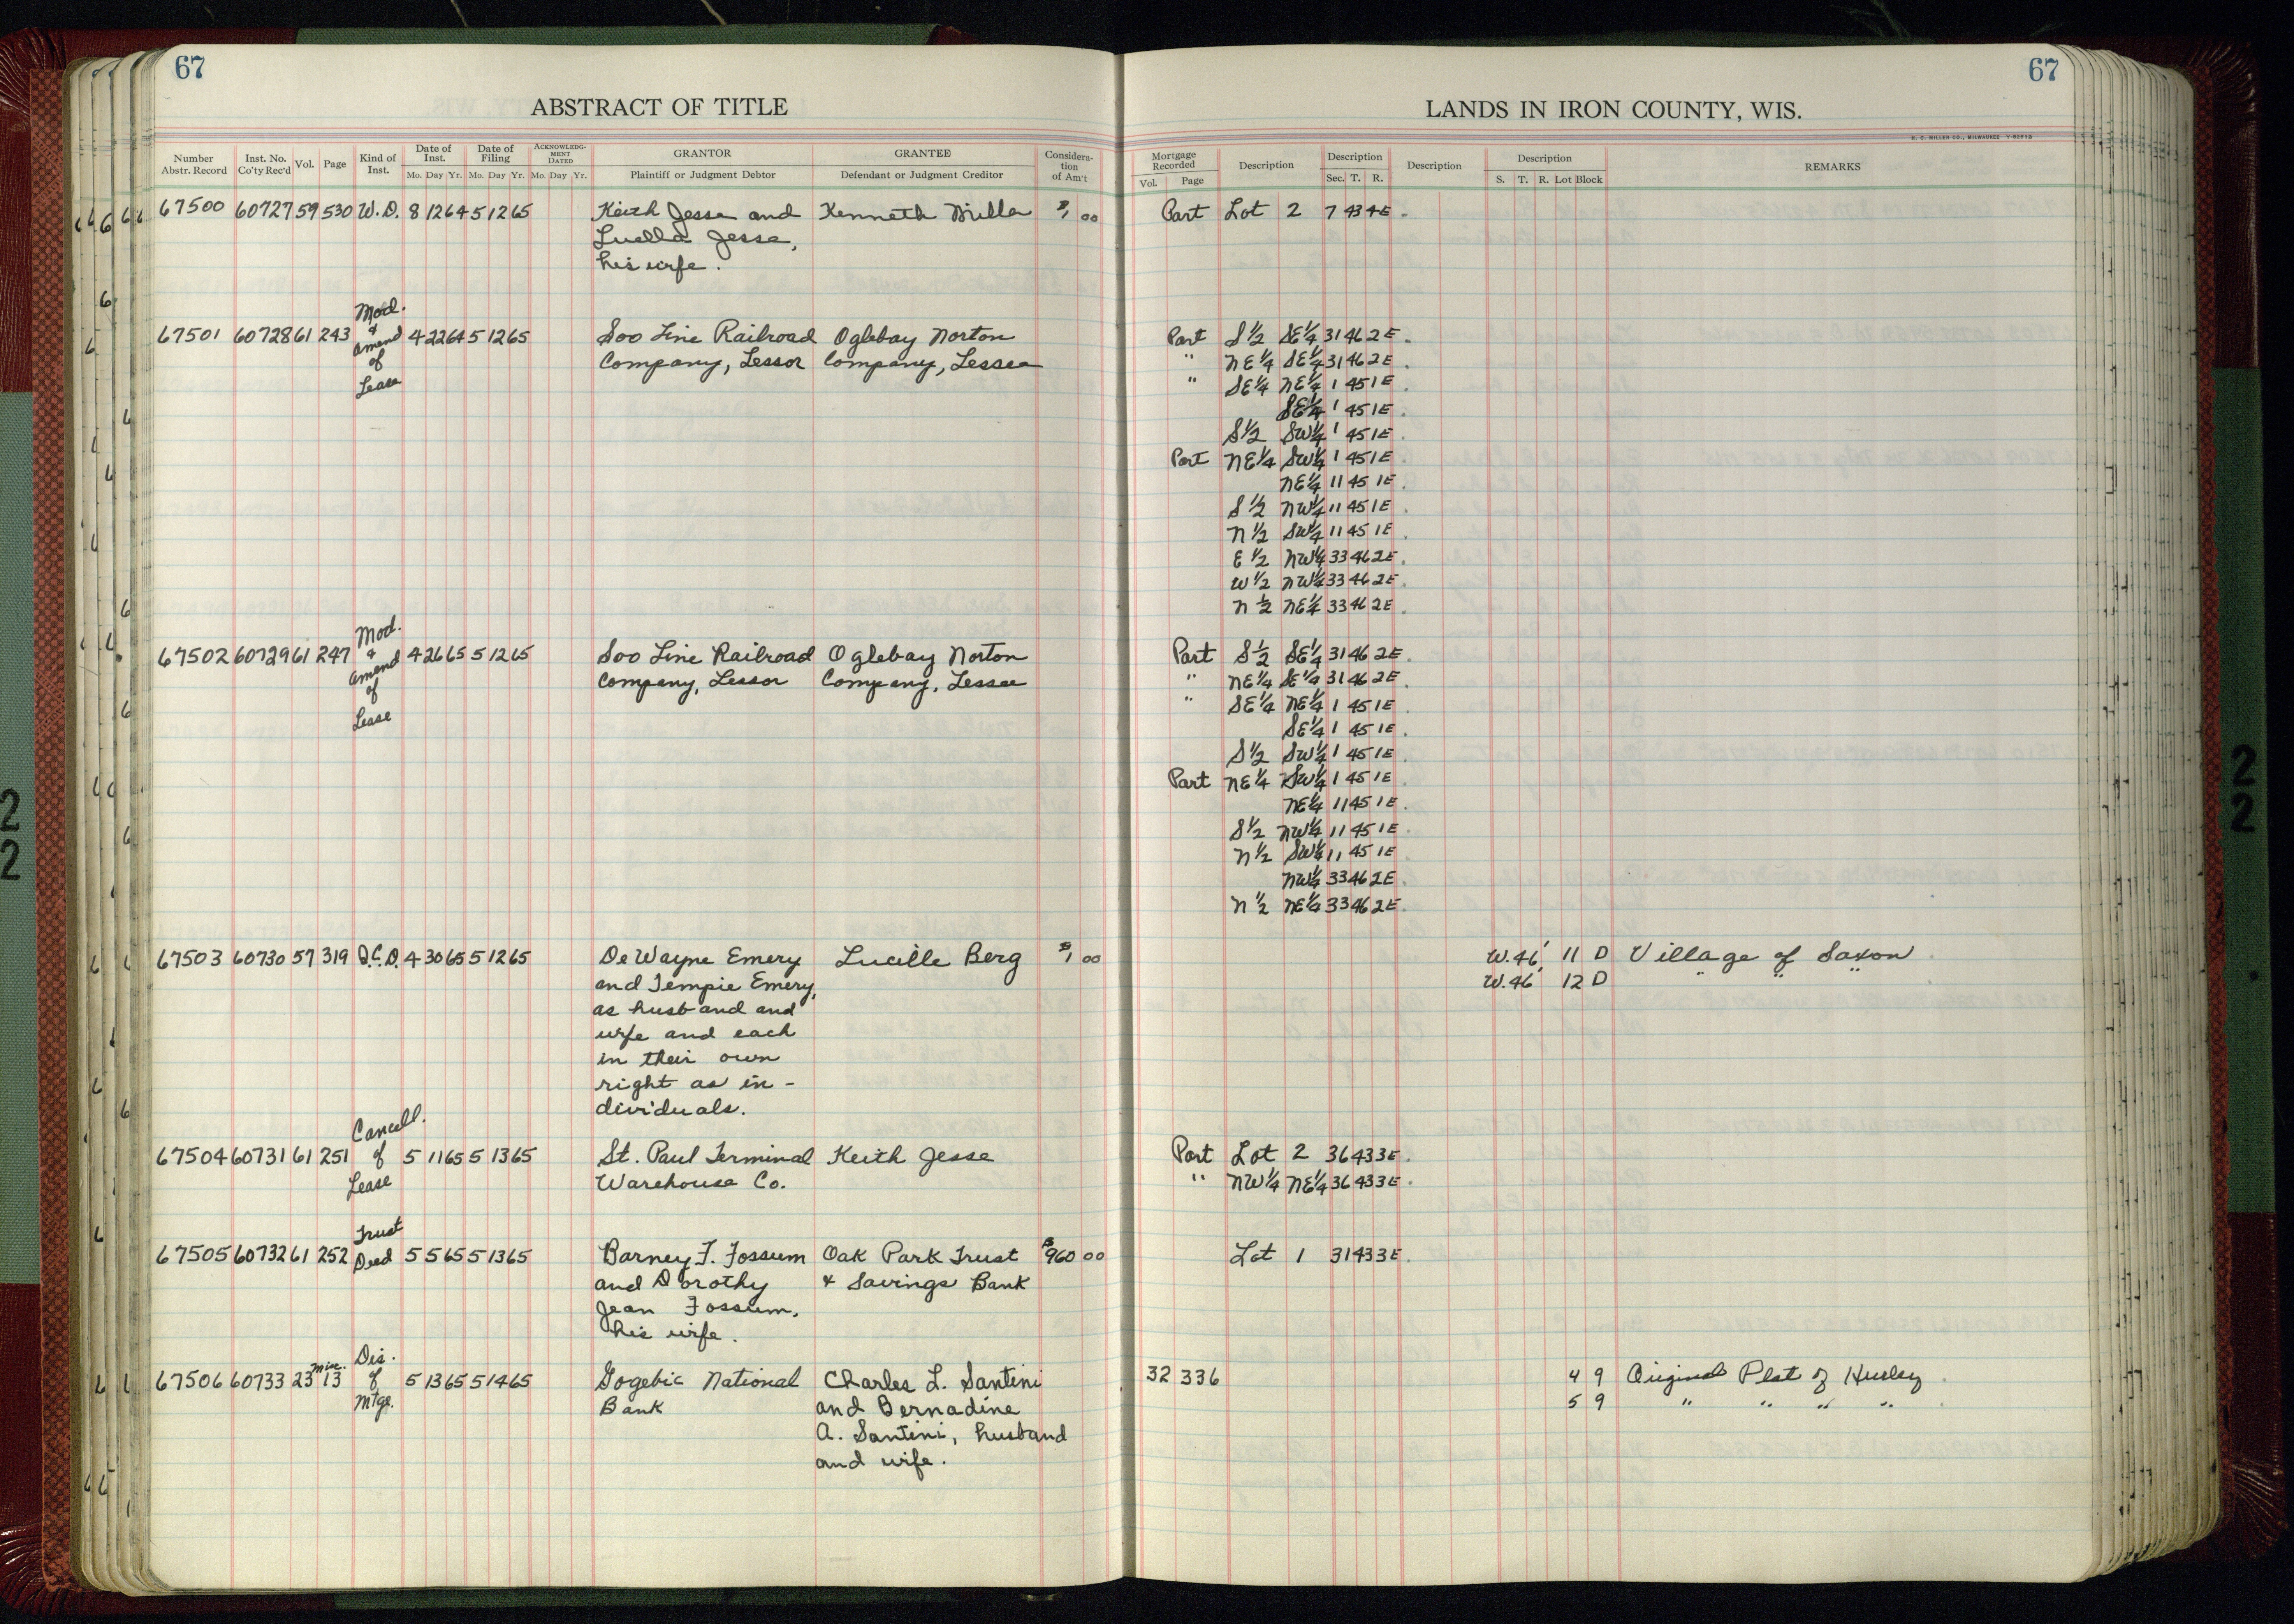 67
67
ABSTRACT OF TITLE
LANDS IN IRON COUNTY, WIS.
H. C. MILLER CO., MILWAUKEE
Number Abstr. Record Inst. No. Co'ty Rec'd Vol. Page Kind of Inst. Date of Inst. Mo. Day Yr. Date of Filing Mo. Day Yr. ACKNOWLEDG-MENT DATED Mo. Day Yr. GRANTOR Plaintiff or Judgment Debtor GRANTEE Defendant or Judgment Creditor Considera-tion of Am't
Mortgage Recorded Vol. Page Description Description Sec. T. R. Description Description S. T. R. Lot Block REMARKS
67500 60727 59 530 W.D. 8 12 64 5 12 65 Keith Jesse and Kenneth Miller $1 00 Part Lot 2 7 43 4E.
Luella Jesse,
his wife.
Mod.
67501 60728 61 243 & 4 22 64 5 12 65 Soo Line Railroad Oglebay Norton Part S½ SE¼ 31 46 2E.
amend Company, Lessor Company, Lessee " NE¼ SE¼ 31 46 2E.
of " SE¼ NE¼ 1 45 1E.
Lease SE¼ 1 45 1E.
S½ SW¼ 1 45 1E.
Part NE¼ SW¼ 1 45 1E.
NE¼ 11 45 1E.
S½ NW¼ 11 45 1E.
N½ SW¼ 11 45 1E.
E½ NW¼ 33 46 2E.
W½ NW¼ 33 46 2E.
N½ NE¼ 33 46 2E.
Mod.
67502 60729 61 247 & 4 26 65 5 12 65 Soo Line Railroad Oglebay Norton Part S½ SE¼ 31 46 2E.
amend Company, Lessor Company, Lessee " NE¼ SE¼ 31 46 2E.
of " SE¼ NE¼ 1 45 1E.
Lease SE¼ 1 45 1E.
S½ SW¼ 1 45 1E.
Part NE¼ SW¼ 1 45 1E.
NE¼ 11 45 1E.
S½ NW¼ 11 45 1E.
N½ SW¼ 11 45 1E.
NW¼ 33 46 2E.
N½ NE¼ 33 46 2E.
67503 60730 57 319 Q.C.D. 4 30 65 5 12 65 DeWayne Emery Lucille Berg $1 00 W.46' 11 D Village of Saxon
and Tempie Emery, W.46' 12 D " " "
as husband and
wife and each
in their own
right as in-
dividuals.
Cancell.
67504 60731 61 251 of 5 11 65 5 13 65 St. Paul Terminal Keith Jesse Part Lot 2 36 43 3E.
Lease Warehouse Co. " NW¼ NE¼ 36 43 3E.
Trust
67505 60732 61 252 Deed 5 5 65 5 13 65 Barney T. Fossum Oak Park Trust $960 00 Lot 1 31 43 3E.
and Dorothy & Savings Bank
Jean Fossum,
his wife.
Misc. Dis.
67506 60733 23 13 of 5 13 65 5 14 65 Gogebic National Charles L. Santini 32 336 4 9 Original Plat of Hurley
Mtge. Bank and Bernadine 5 9 " " " "
A. Santini, husband
and wife.
2
2
2
2